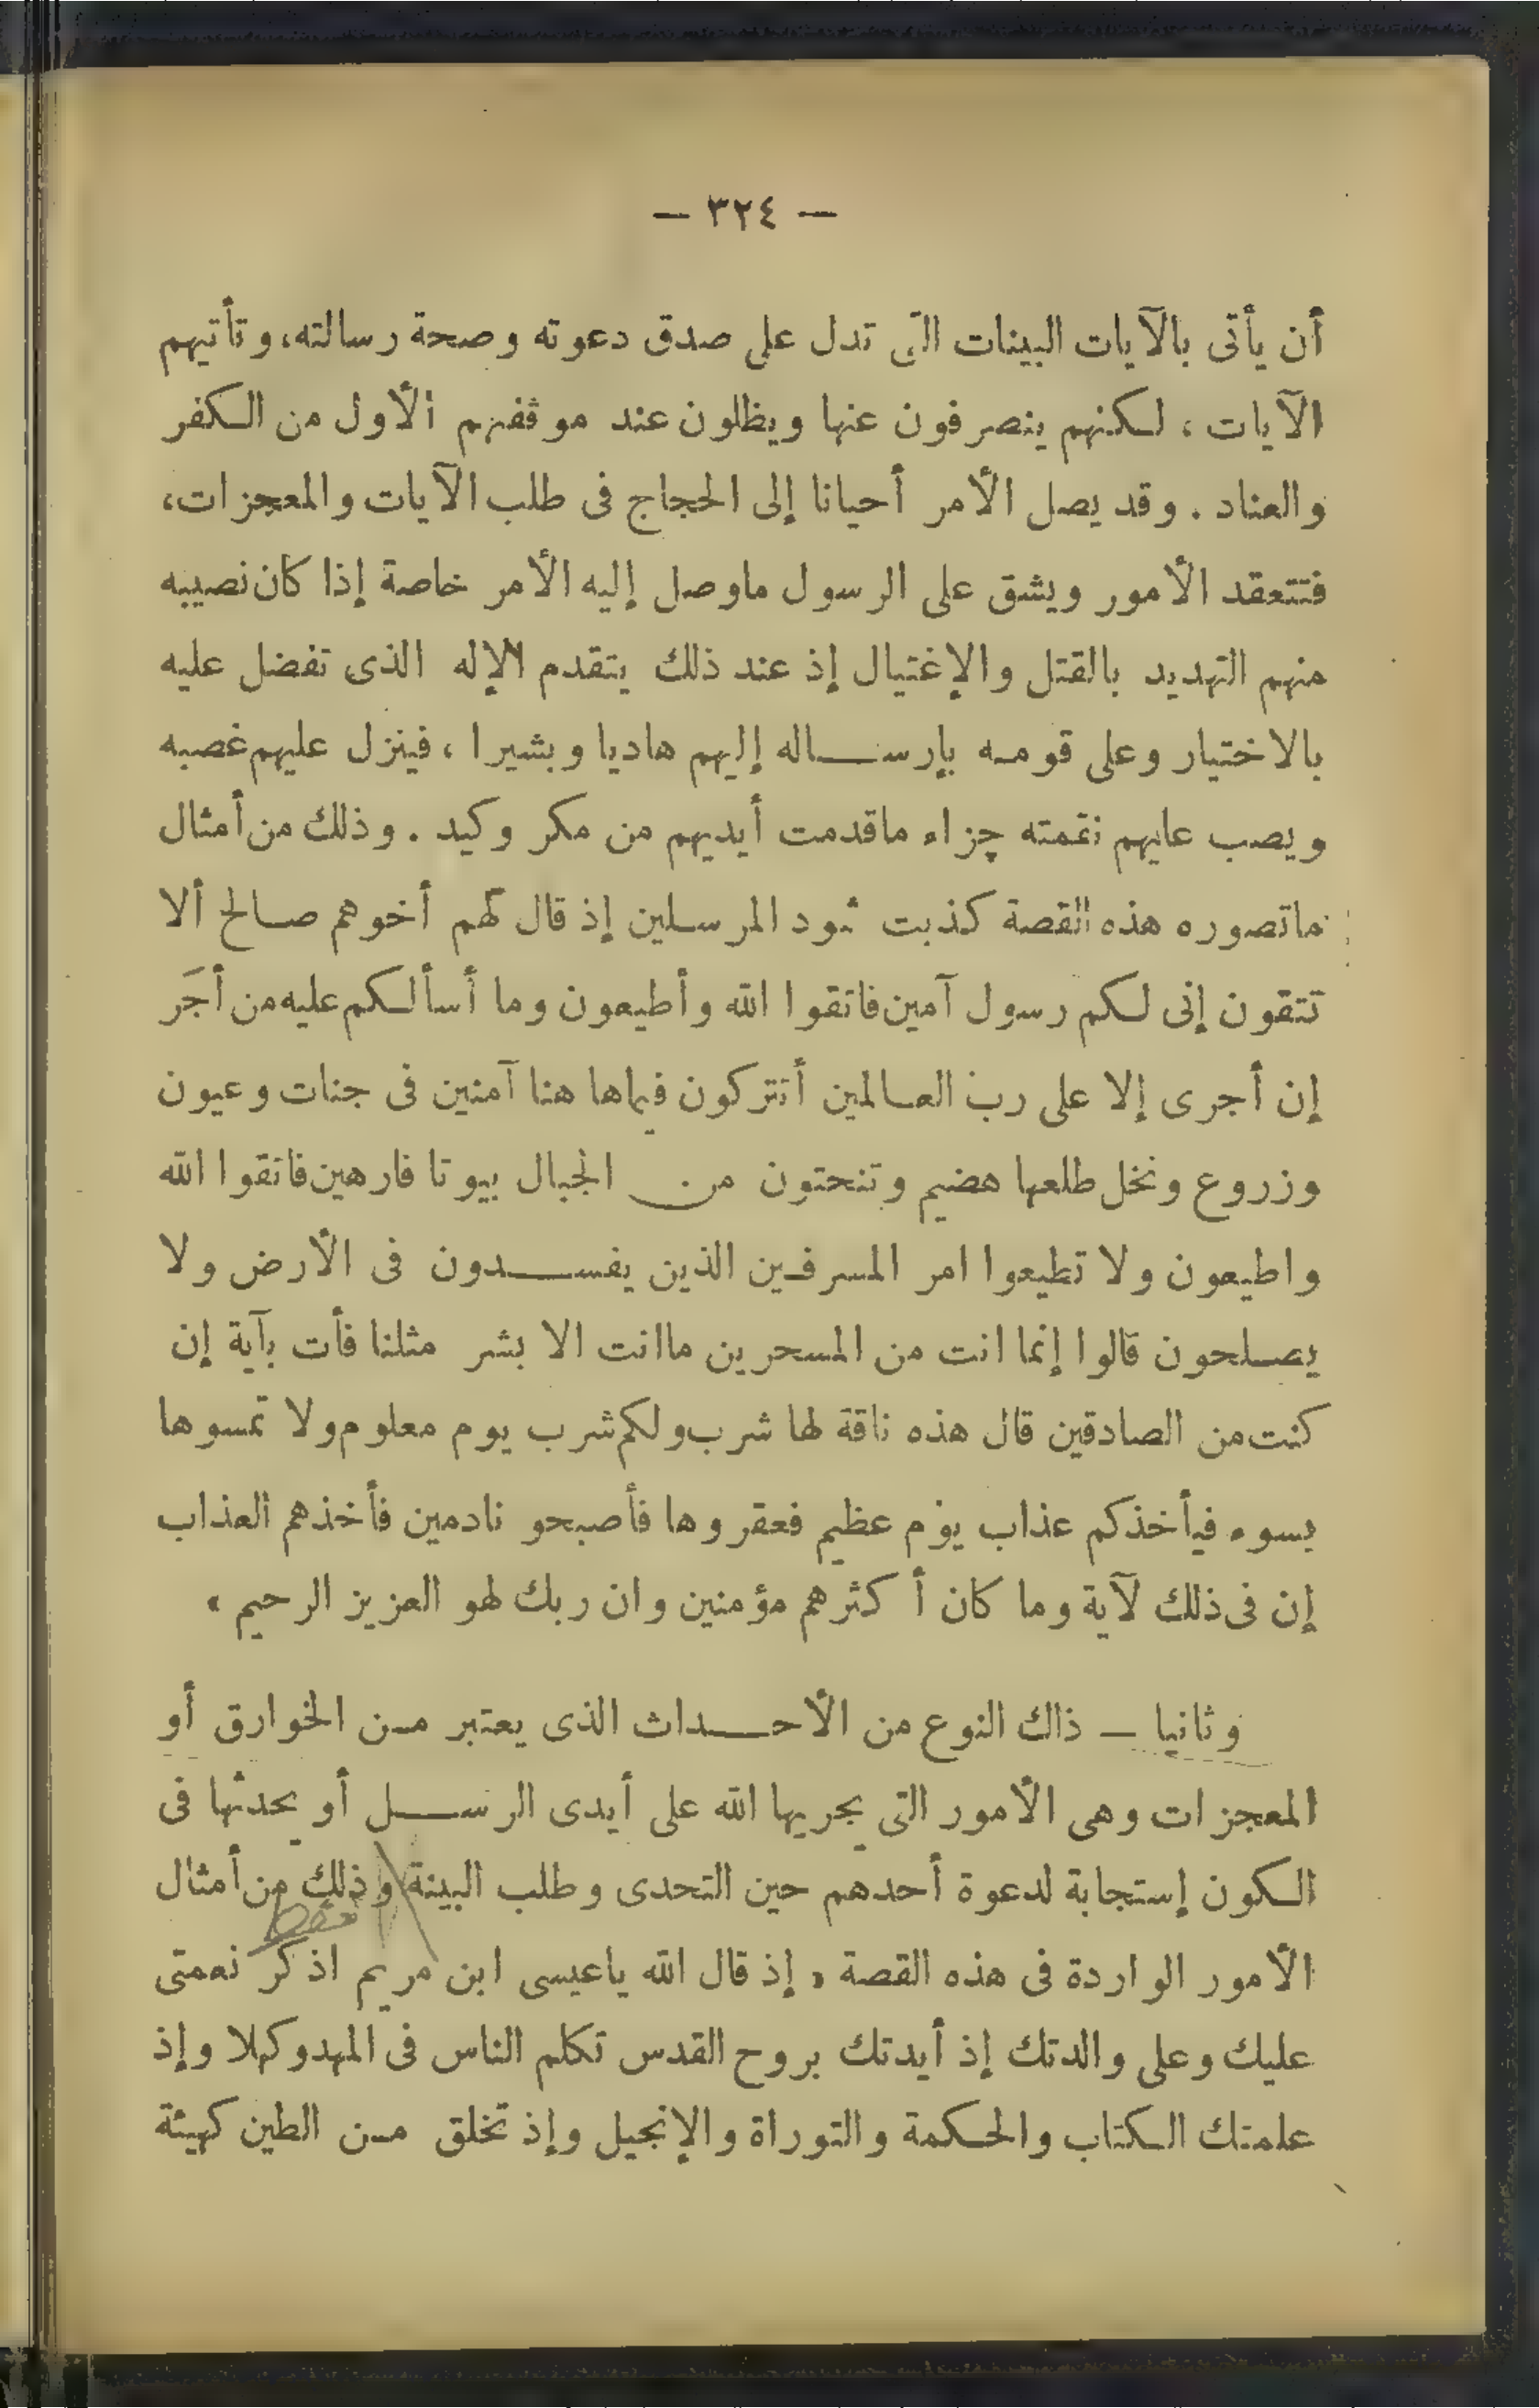 — ٣٢٤ —
أن يأتى بالآيات البينات التى تدل على صدق دعوته وصحة رسالته، وتأتيهم
الآيات ، لكنهم ينصرفون عنها ويظلون عند موقفهم الأول من الكفر
والعناد . وقد يصل الأمر أحيانا إلى الحجاج فى طلب الآيات والمعجزات،
فتتعقد الأمور ويشق على الرسول ماوصل إليه الأمر خاصة إذا كان نصيبه
منهم التهديد بالقتل والإغتيال إذ عند ذلك يتقدم الإله الذى تفضل عليه
بالاختيار وعلى قومه بإرساله إليهم هاديا وبشيرا ، فينزل عليهم غضبه
ويصب عليهم نقمته جزاء ماقدمت أيديهم من مكر وكيد . وذلك من أمثال
ماتصوره هذه القصة كذبت ثمود المرسلين إذ قال لهم أخوهم صالح ألا
تتقون إنى لكم رسول آمين فاتقوا الله وأطيعون وما أسألكم عليه من أجر
إن أجرى إلا على رب العالمين أتتركون فيماها هنا آمنين فى جنات وعيون
وزروع ونخل طلعها هضيم وتنحتون من الجبال بيوتا فارهين فاتقوا الله
واطيعون ولا تطيعوا امر المسرفين الذين يفسدون فى الأرض ولا
يصلحون قالوا إنما انت من المسحرين ماانت الا بشر مثلنا فأت بآية إن
كنت من الصادقين قال هذه ناقة لها شرب ولكم شرب يوم معلوم ولا تمسوها
بسوء فيأخذكم عذاب يوم عظيم فعقروها فأصبحو نادمين فأخذهم العذاب
إن فى ذلك لآية وما كان أكثرهم مؤمنين وان ربك لهو العزيز الرحيم »
وثانيا — ذاك النوع من الأحداث الذى يعتبر من الخوارق أو
المعجزات وهى الأمور التى يجريها الله على أيدى الرسل أو يحدثها فى
الكون إستجابة لدعوة أحدهم حين التحدى وطلب البينة وذلك من أمثال
الأمور الواردة فى هذه القصة « إذ قال الله ياعيسى ابن مريم اذكر نعمتى
عليك وعلى والدتك إذ أيدتك بروح القدس تكلم الناس فى المهد وكهلا وإذ
علمتك الكتاب والحكمة والتوراة والإنجيل وإذ تخلق من الطين كهيئة